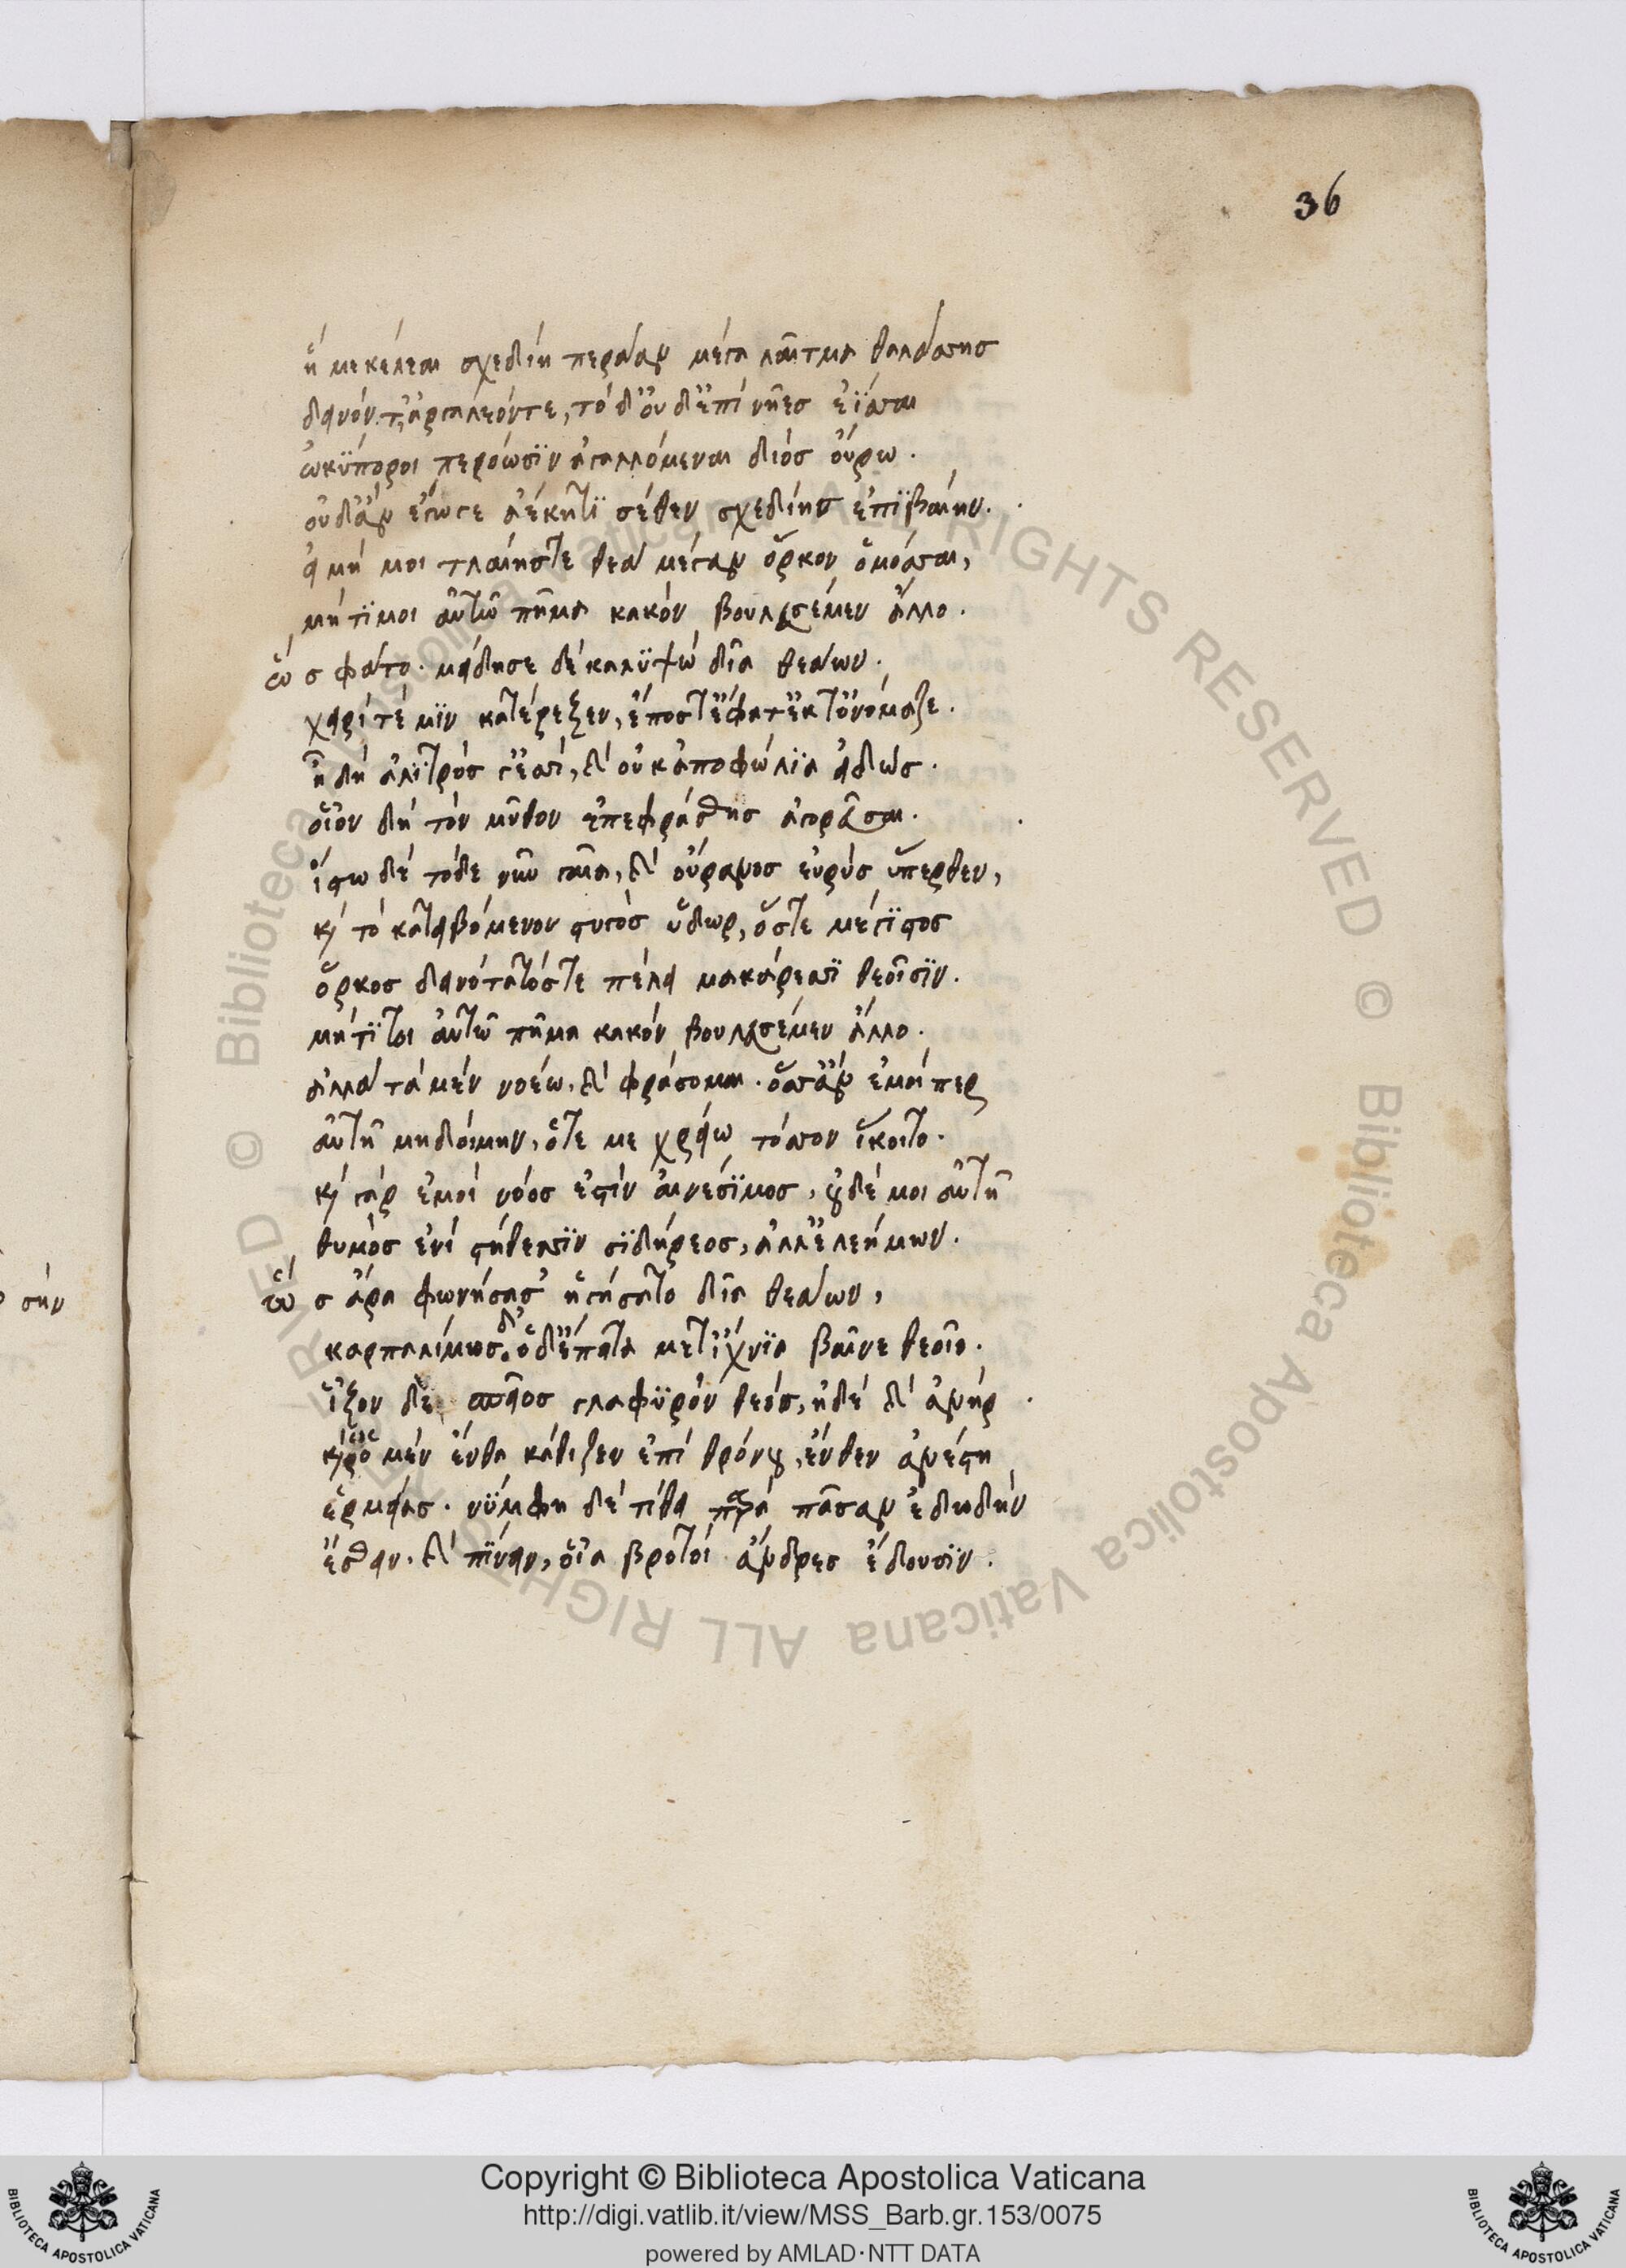 36
ἥ με κέλεαι σχεδίῃ περάαν μέγα λαῖτμα θαλάσσης
δεινόν τ' ἀργαλέόν τε, τό δ' οὐδ' ἐπί νῆες ἐΐσαι
ὠκϋποροι περόωσϊν ἀγαλλόμεναι διός οὔρω.
οὐδ' ἄν ἐγώ γε ἀέκητϊ σέθεν σχεδίης ἐπϊβαίην.
εἰ μή μοι τλαίης γε θεά μέγαν ὅρκον ὁμόσσαι,
μή τϊ μοι αὐτῶ πῆμα κακόν βουλευσέμεν ἄλλο.
ὥς φάτο. μείδησε δέ καλϋψώ δῖα θεάων.
χειρί τέ μϊν κατέρεξεν, ἔπος τ' ἔφατ' ἔκ τ' ὀνόμαζε.
ἦ δή ἀλϊτρός γ' ἐσσί, καί οὐκ ἀποφώλϊα εἰδώς.
οἷον δή τόν μῦθον ἐπεφράσθης ἀγορεῦσαι.
ἴστω δέ τόδε νῦν γαῖα, καί οὐρανος εὐρύς ὕπερθεν,
καί τό κατειβόμενον στυγός ὕδωρ, ὅστε μέγϊστος
ὅρκος δεινότατός τε πέλει μακάρεσσϊ θεοῖσϊν.
μή τϊ τοι αὐτῶ πῆμα κακόν βουλευσέμεν ἄλλο.
ἀλλά τά μέν νοέω, καί φράσομαι. ὅσσ' ἄν ἐμοί περ
αὐτῇ μηδοίμην, ὅτε με χρείω τόσσον ἵκοιτο.
καί γάρ ἐμοί νόος ἐστίν ἐναισϊμος, οὐδέ μοι αὐτῆ
θυμός ἐνί στήθεσσϊν σϊδήρεος, ἀλλ' ἐλεήμων.
ὥς ἄρα φωνήσασ' ἡγήσατο δῖα θεάων,
καρπαλίμως. ὁ δ' ἔπειτα μετ' ἴχνϊα βαῖνε θεοῖο.
ἷξον δέ σπεῖος γλαφϋρόν θεός, ἠδέ καί ἀνήρ
καί ῥ' ὁ μέν ἔνθα κάθιζεν ἐπί θρόνου, ἔνθεν ἀνέστη
ἑρμείας. νϋμφη δέ τίθει παρά πᾶσαν ἐδωδήν
ἔσθειν, καί πϊνειν, οἷα βροτοί ἄνδρες ἔδουσϊν.
σήν
Copyright © Biblioteca Apostolica Vaticana
http://digi.vatlib.it/view/MSS_Barb.gr.153/0075
powered by AMLAD·NTT DATA